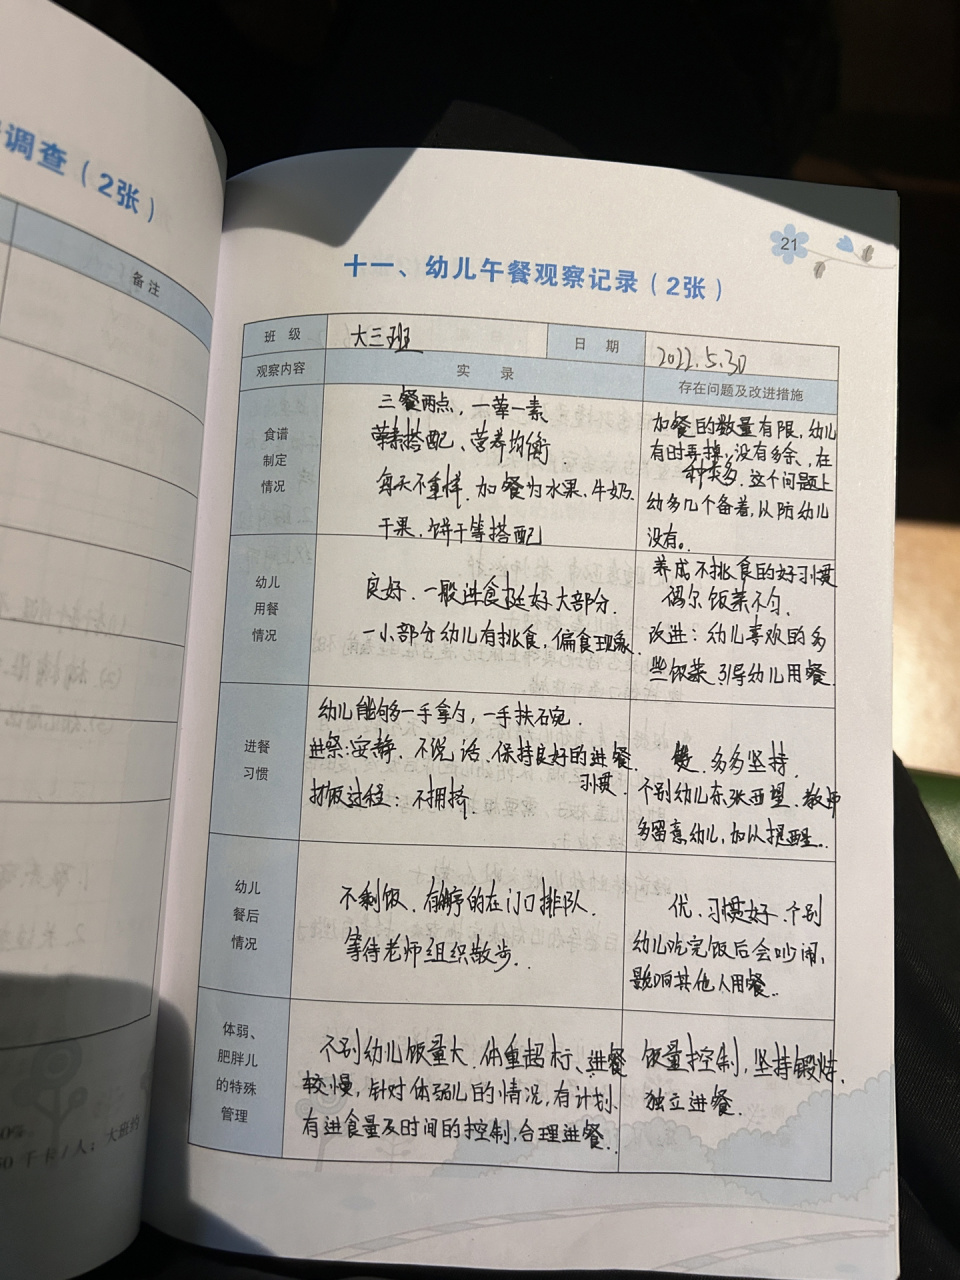 调查（2张）
备注
21
十一、幼儿午餐观察记录（2张）
班级
大三班
日期
2022.5.30
观察内容
实录
存在问题及改进措施
食谱
制定
情况
三餐两点，一荤一素
荤素搭配、营养均衡
每天不重样.加餐为水果、牛奶
干果、饼干等搭配
加餐的数量有限，幼儿
有时弄掉，没有多余、在
种类多.这个问题上
幼多几个备着，以防幼儿
没有。
幼儿
用餐
情况
良好.一般进食挺好.大部分.
一小部分幼儿有挑食，偏食现象.
养成不挑食的好习惯
偶尔饭菜不匀.
改进：幼儿喜欢的多
些饭菜.引导幼儿用餐.
进餐
习惯
幼儿能够一手拿勺，一手扶碗.
进餐：安静、不说话、保持良好的进餐
习惯.
打饭过程：不拥挤.
多多坚持.
个别幼儿东张西望、教师
多留意幼儿，加以提醒..
幼儿
餐后
情况
不剩饭、有序的在门口排队.
等待老师组织散步..
优、习惯好、个别
幼儿吃完饭后会吵闹，
影响其他人用餐..
体弱、
肥胖儿
的特殊
管理
个别幼儿饭量大、体重超标、进餐
较慢，针对体弱儿的情况，有计划、
有进食量及时间的控制，合理进餐..
饭量控制，坚持锻炼、
独立进餐.
0%
50千卡/人；大班约